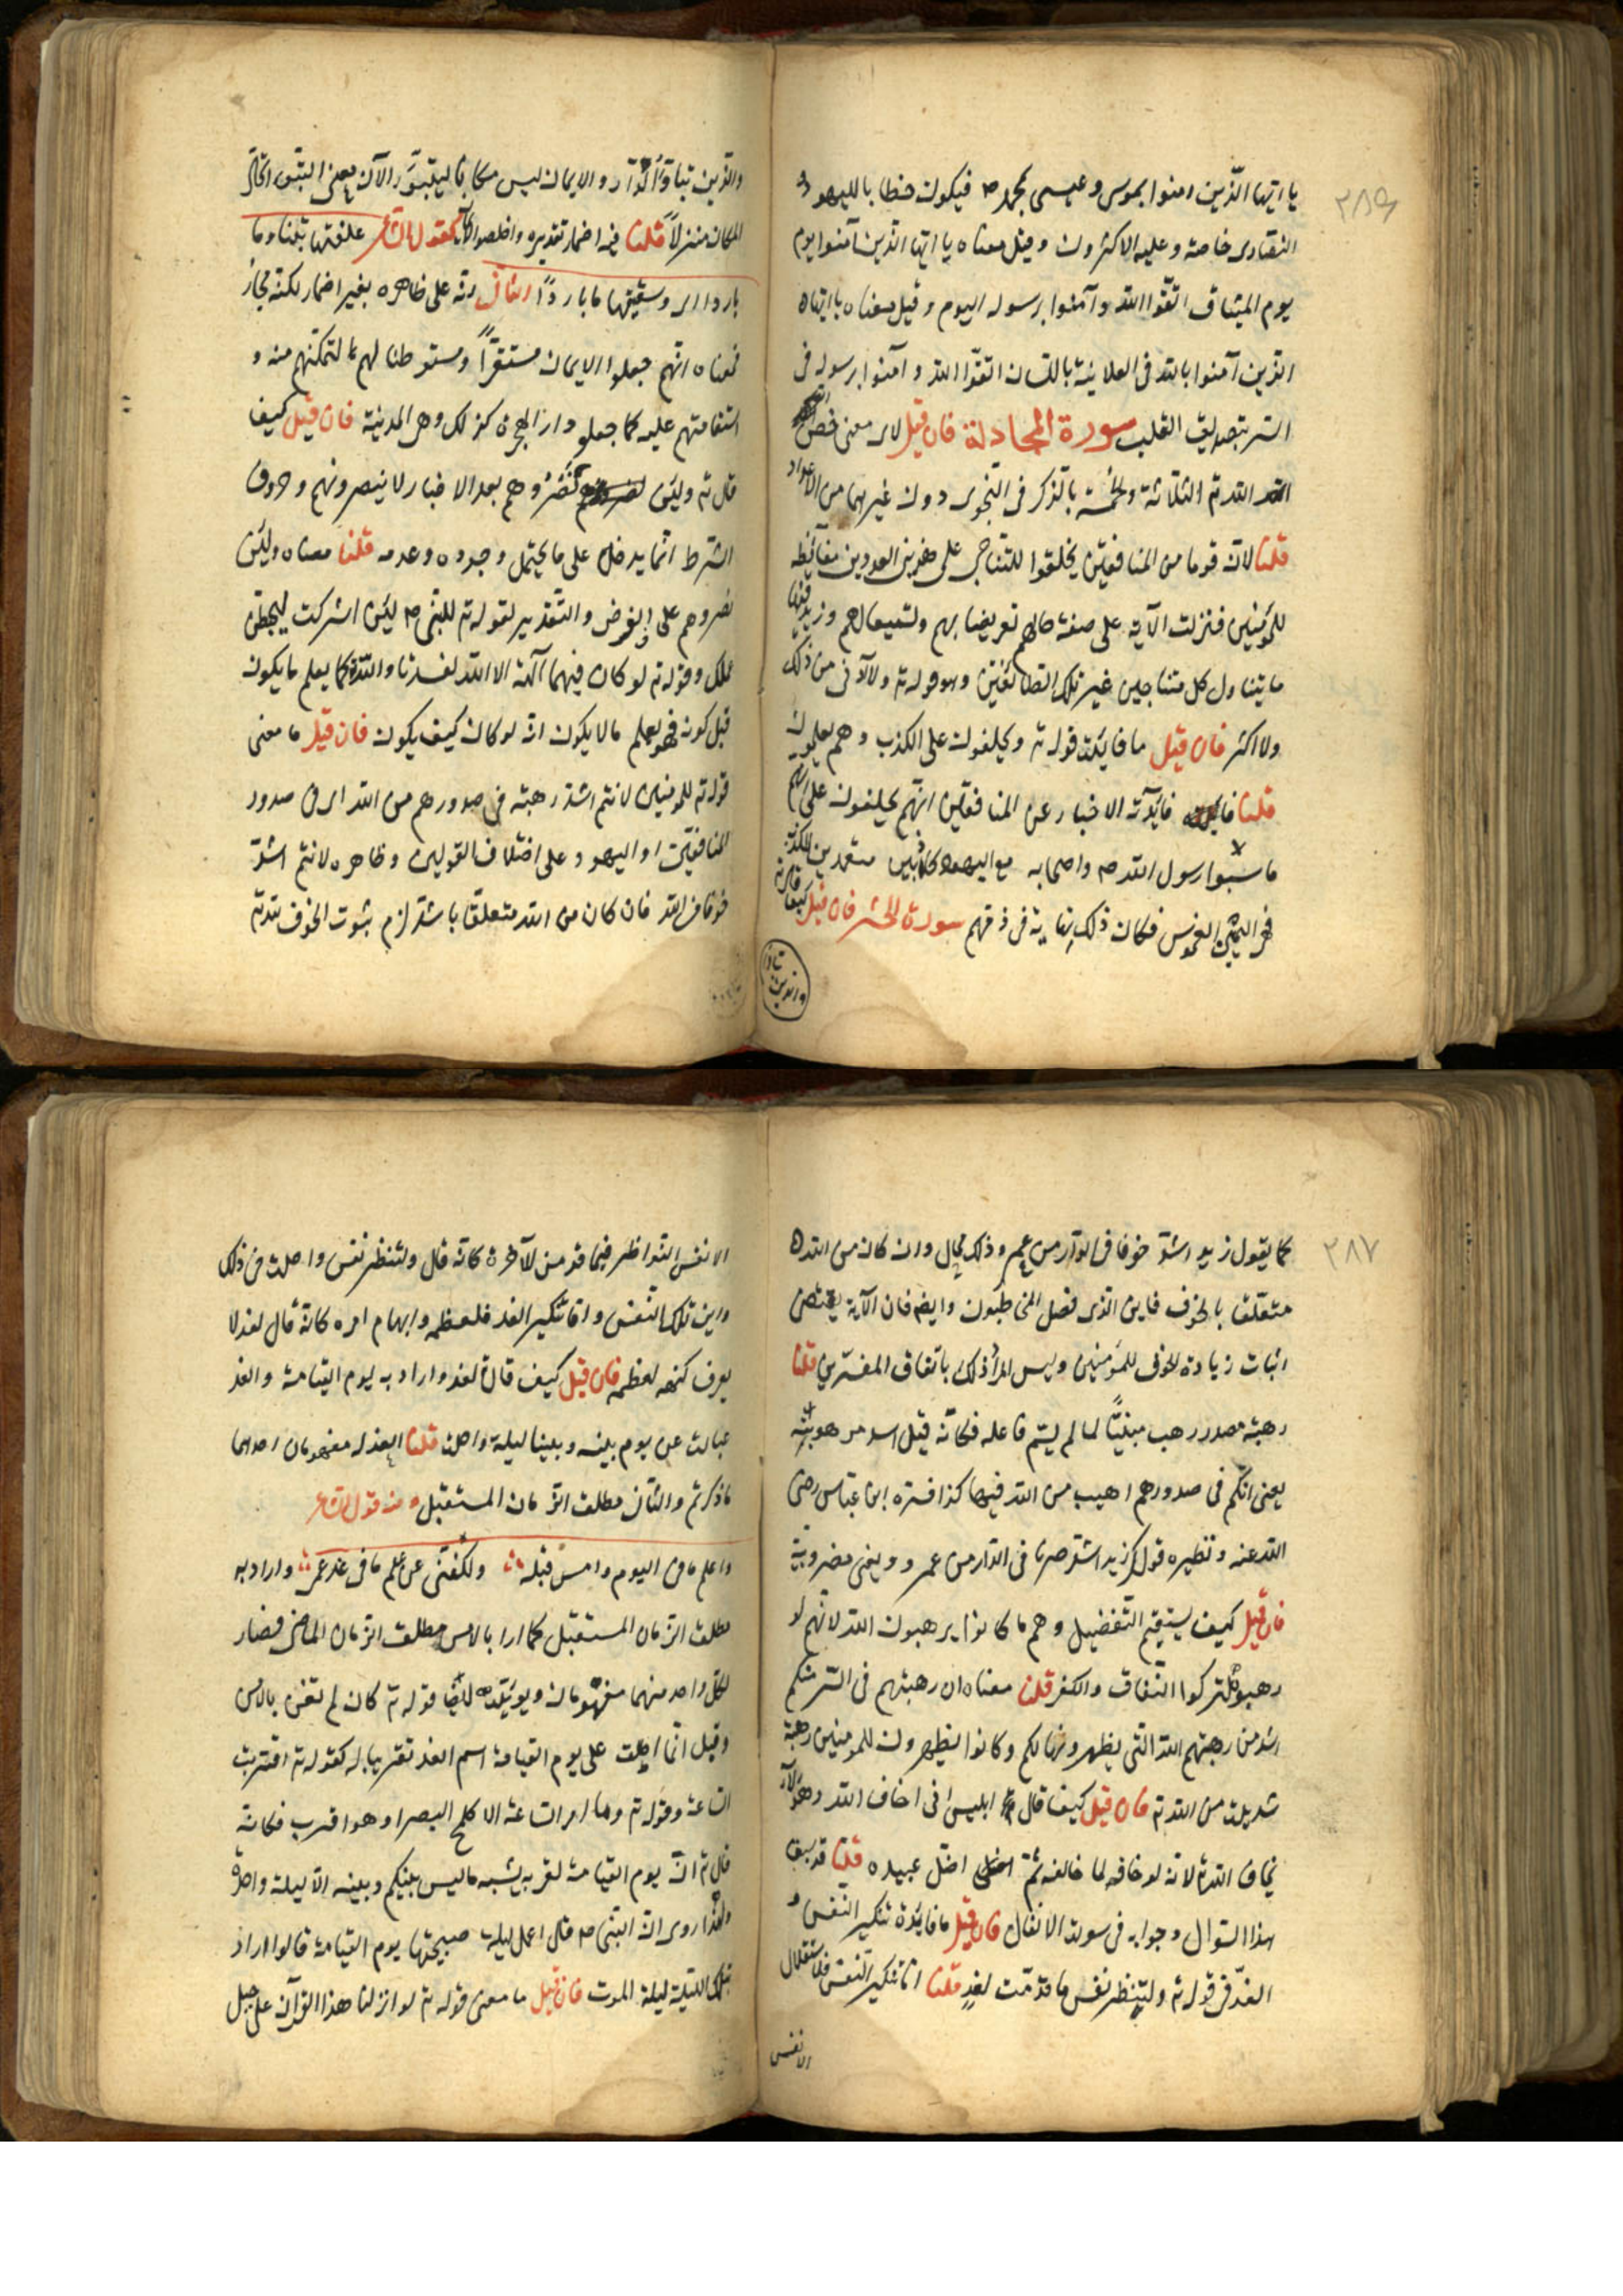 ٢٨٦
يا ايّها الّذين امنوا بموسى وعيسى بمحمد ص فيكون خطابا لليهود و
النصارى خاصة وعليه الاكثرون وقيل معناه يا ايّها الّذين آمنوا يوم
يوم الميثاق اتّقوا الله وآمنوا برسوله اليوم وقيل معناه يا ايّها
الّذين آمنوا بالله فى العلانية باللسان اتقوّا الله وآمنوا برسوله فى
السر بتصديق القلب سورة المجادلة فان قيل لاى معنى خص
الله تم الثلاثة والخمسة بالذكر فى النّجوى دون غيرهما من الاعداد
قلنا لان قوما من المنافقين تخلقوا للتناجى على هذين العددين مغايظة
للمؤمنين فنزلت الآية على صفة حالهم تعريضا بهم وتسميعا لهم وزيد فيها
ما يتناول كل متناجين غير تلك الطائفتين وهو قوله تم ولا ادنى من ذلك
ولا اكثر فان قيل ما فايدة قوله تم ويحلفون على الكذب وهم يعلمون
قلنا فايدته الاخبار عن المنافقين انّهم يحلفون على انهم
ما سبّوا رسول الله ص واصحابه مع اليهود كاذبين متعمدين للكذب
فهى اليمين الغموس فكان ذلك نهاية فى ذمّهم سورة الحشر فان قيل كيف قال تم
والذين تبا
والذين تبوّؤا الدّار والايمان ليس مكانا ليتبوّء لانّ معنى التبوء اتّخاذ
المكان منزلاً قلنا فيه اضمار تقديره واخلصوا الايمان كقول الشاعر علفتها تبنا وما
باردا اى وسقيتها ما باردًا الثانى انّه على ظاهره بغير اضمار لكنه مجاز
فمعناه انّهم جعلوا الايمان مستقرّاً ومستوطنا لهم لتمكنهم منه و
استقامتهم عليه كما جعلوا دار الهجرة كذلك وهى المدينة فان قيل كيف
قال تم ولئن نصروهم بعد الاخبار لا ينصرونهم وحرف
الشرط انّما يدخل على ما يحتمل وجوده وعدمه قلنا معناه ولئن
نصروهم على الفرض والتقدير لقوله تم للنبى ص لئن اشركت ليحبطن
عملك وقوله تم لو كان فيهما آلهة الا الله لفسدتا والله كما يعلم ما يكون
قبل كونه فهو يعلم ما لا يكون انه لو كان كيف يكون فان قيل ما معنى
قوله تم للمؤمنين لانتم اشدّ رهبة فى صدورهم من الله اى فى صدور
المنافقين او اليهود على اختلاف القولين وظاهره لانتم اشدّ
خوفا من الله فان كان من الله متعلقا باشد لزم ثبوت الخوف لله تم
٢٨٧
كما يقول زيد اشدّ خوفا فى الدّار من عمر وذلك محال وان كان من الله
متعلقا بالخوف فاين الذى فضل المخاطبون وايضا فان الآية تقتضى
اثبات زيادة الخوف للمؤمنين وليس المراد ذلك باتفاق المفسّرين قلنا
رهبة مصدر رهب مبنيّاً لما لم يسم فاعله فكانّه قيل اشد مرهوبيّة
يعنى انكم فى صدورهم اهيب من الله فيها كذا فسّره ابن عبّاس رضى
الله عنه ونظيره قولك زيد اشدّ ضربا فى الدّار من عمرو ويعنى مضروبيّة
فان قيل كيف يستقيم التفضيل وهم ما كانوا يرهبون الله لانّهم لو
رهبوه لتركوا النّفاق والكفر قلنا معناه ان رهبتهم فى السّر منكم
اشد من رهبتهم الله الّتى يظهرونها لكم وكانوا يظهرون للمؤمنين رهبة
شديدة من الله تم فان قيل كيف قال ابليس انى اخاف الله وهو لا
يخاف الله تم لانه لو خافه لما خالفه ثمّ اضل عبيده قلنا قد سبق
هذا السّوال وجوابه فى سورة الانفال فان قيل ما فايدة تنكير النفس و
الغد فى قوله تم ولتنظر نفس ما قدّمت لغدٍ قلنا امّا تنكير النّفس فلاستقلال
الانفس
الانفس النّواظر فيما قدّمن للآخرة كانّه قال ولتنظر نفس واحدة فى ذلك
واين تلك النّفس وامّا تنكير الغد فلعظمه وابهام امره كانّه قال لغد لا
يعرف كنهه لعظمه فان قيل كيف قال لغد واراد به يوم القيامة والغد
عبارة عن يوم بينه وبيننا ليلة واحدة قلنا الغد له مفهومان احدهما
ما ذكرتم والثّانى مطلق الزّمان المستقبل ومنه قول الشاعر
واعلم ما فى اليوم والامس قبله ولكننى عن علم ما فى غد عمى واراد به
مطلق الزّمان المستقبل كما اراد بالامس مطلق الزمان الماضى فصار
لكل واحد منهما مفهومان ويؤيّده ايضا قوله تم كان لم تغن بالامس
وقيل انّما اطلق على يوم القيامة اسم الغد تقريبا له كقوله تم اقتربت
السّاعة وقوله تم وما امر السّاعة الا كلمح البصر او هو اقرب فكانه
قال تم انّ يوم القيامة لقربه يشبه ما ليس بينكم وبينه الّا ليلة واحدة
ولهذا روى انّ النبّى ص قال اعمل ليلة صبيحتها يوم القيامة قالوا اراد
بتلك الليلة ليلة الموت فان قيل ما معنى قوله تم لو انزلنا هذا القرآن على جبل